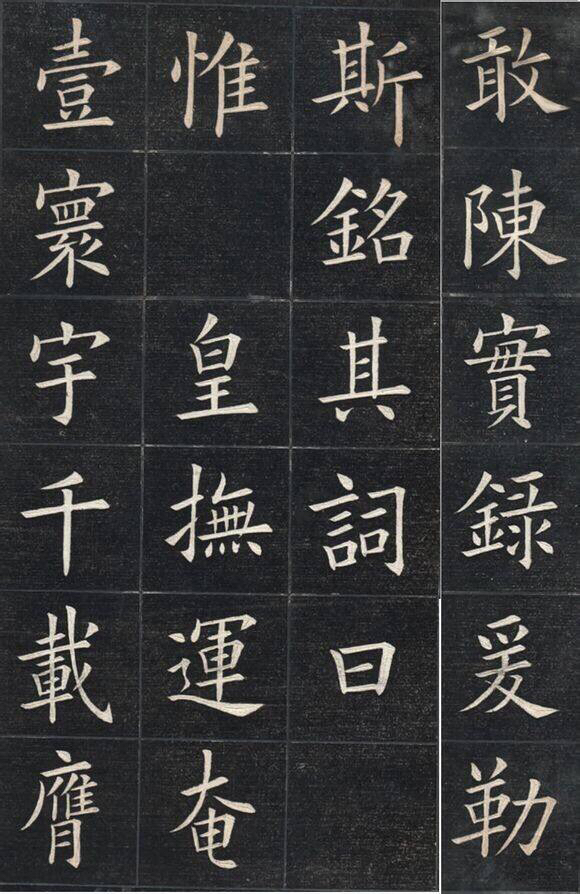 敢陳實錄爰勒
斯銘其詞曰
惟 皇撫運奄
壹寰宇千載膺